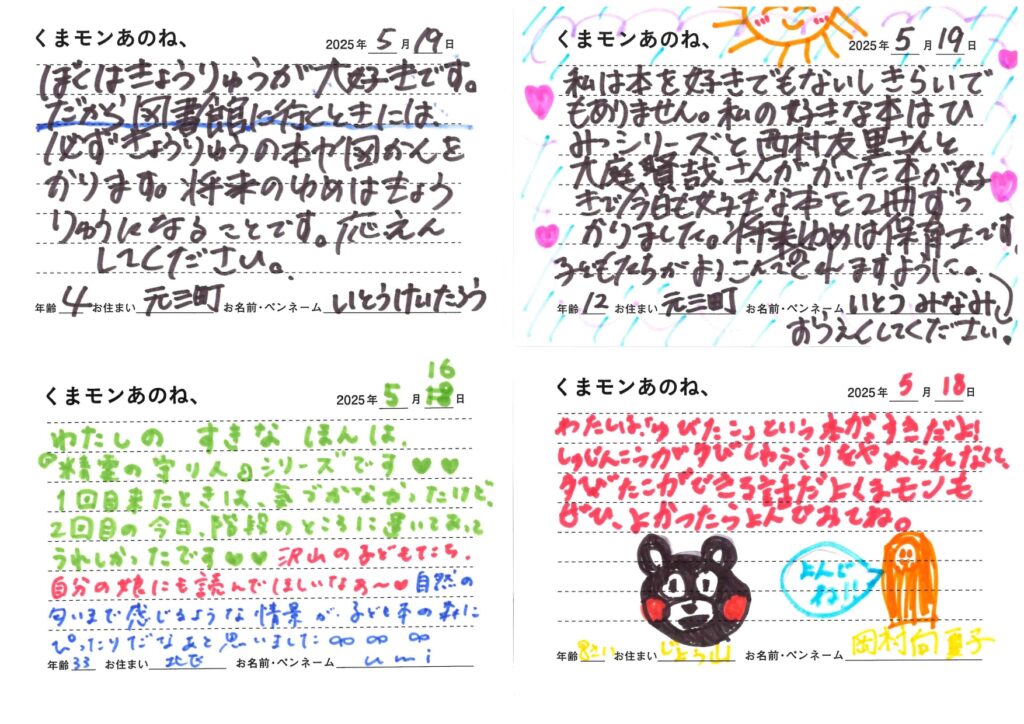 くまモンあのね、
2025年 5 月 19 日
ぼくはきょうりゅうが大好きです。
だから図書館に行くときには
必ずきょうりゅうの本や図かんを
かります。将来のゆめはきょう
りゅうになることです。応えん
してください。
年齢 4 お住まい 元三町 お名前・ペンネーム いとうけいたろう
くまモンあのね、
2025年 5 月 19 日
私は本を好きでもないしきらいで
もありません。私の好きな本はひ
みつシリーズと西村友里さんと
大庭賢哉さんがかいた本が好
きで今日も好きな本を2冊ずつ
かりました。将来のゆめは保育士です
子どもたちがよろこんでくれますように。
年齢 12 お住まい 元三町 お名前・ペンネーム いとうみなみ
おうえんしてください。
くまモンあのね、
2025年 5 月 16 日
わたしの すきな ほんは、
『精霊の守り人』シリーズです♥♥
1回目来たときは、気づかなかったけど、
2回目の今日、階段のところに置いてあって
うれしかったです♥♥ 沢山の子どもたち、
自分の娘にも読んでほしいなぁ〜♥ 自然の
匂いまで感じるような情景が、子ども本の森に
ぴったりだなぁと思いました∞ ∞ ∞
年齢 33 お住まい 北区 お名前・ペンネーム umi
くまモンあのね、
2025年 5 月 18 日
わたしは、「ゆびたこ」という本がすきだよ!
しゅじんこうが、ゆびしゃぶりをやめられなくて、
ゆびたこができる話だよくまモンも
ぜひ、よかったらよんでみてね。
よんでね!!
年齢 8さい お住まい お名前・ペンネーム 岡村向夏子